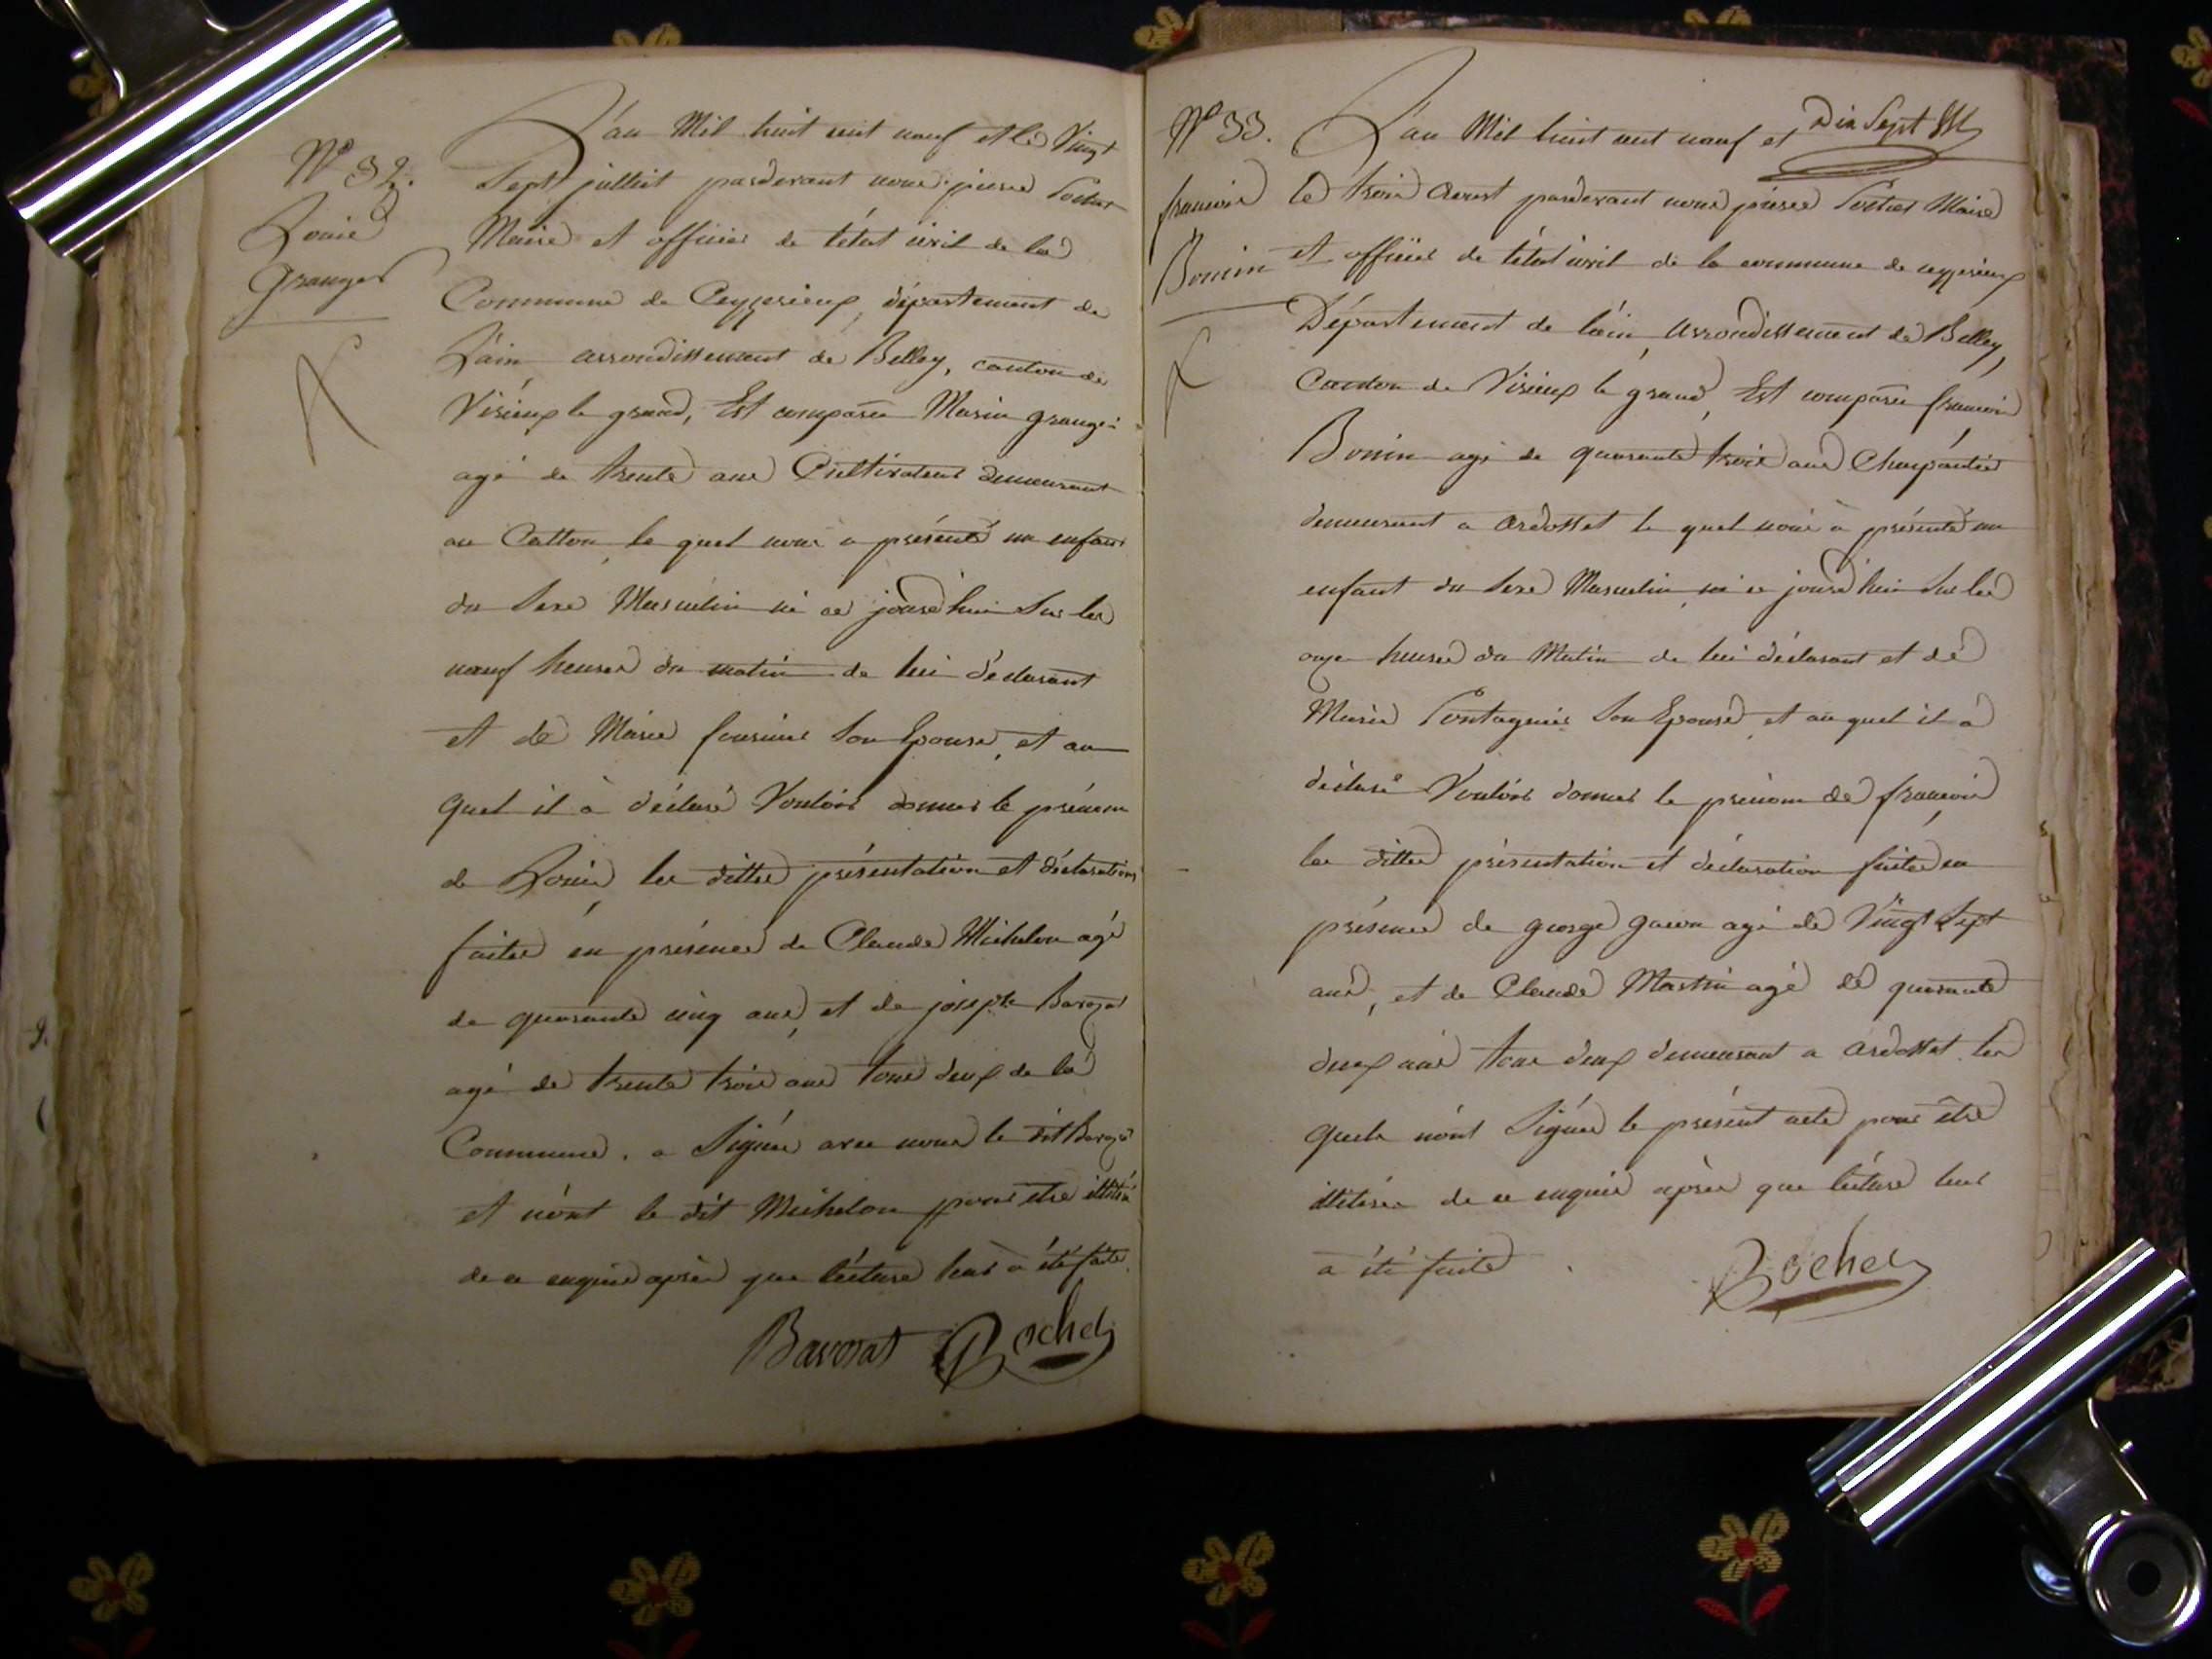 N° 32.
Louis
Granger
L'an Mil huit cent neuf et le Vingt
Sept juillet pardevant nous pierre
Maire et officier de l'état civil de la
Commune de Ceyzerieux, département de
L'ain arrondissement de Belley, canton de
Virieux le grand, Est comparu Marin grangé
agé de trente ans Cultivateur demeurant
au Catton, le quel nous a présenté un enfant
du Sexe Masculin né ce jourd'hui Sur les
neuf heures du matin de lui déclarant
et de Marie fournier Son Epouse, et au
quel il à déclaré Vouloir donner le prénom
de Louis, les dittes présentation et déclaration
faites en présence de Claude Michelon agé
de quarante cinq ans, et de joseph Barozat
agé de trente trois ans tous deux de la
Commune. a Signé avec nous le dit Barozat
et n'ont le dit Michelon pour être illitéré
de ce enquis après que lécture leur à été faite.
Bavozat Bochet
Dix Sept
N° 33.
francois
Bonin
L'an Mil huit cent neuf et
le trois Aoust pardevant nous pierre Maire
et officier de l'état civil de la commune de ceyzerieux
Département de l'ain, arrondissement de Belley,
Canton de Virieux le grand, Est comparu francois
Bonin agé de quarante trois ans Charpantier
demeurant a ardosset le quel nous à présenté un
enfant du Sexe Masculin, né ce jourd'hui Sur les
onze heures du Matin de lui déclarant et de
Marie Son Epouse, et au quel il à
déclaré Vouloir donner le prénom de francois
les dittes présentation et déclaration faites en
présence de george agé de Vingt Sept
ans, et de Claude Martin agé de quarante
deux ans tous deux demeurant a ardosset les
quels n'ont Signé le présent acte pour être
illitérés de ce enquis après que lécture leur
a été faite.
Bochet